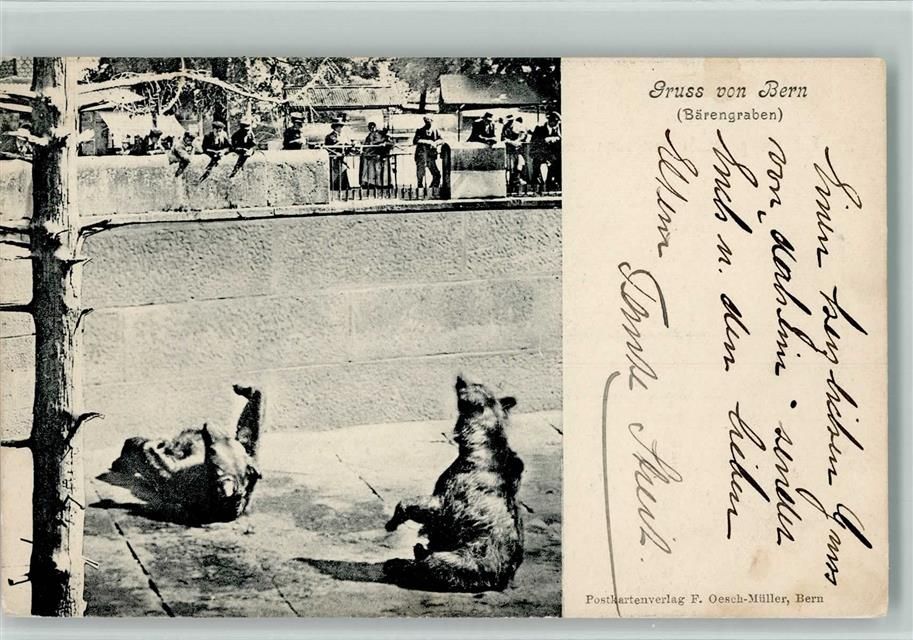 Gruss von Bern
(Bärengraben)
Einen herzlichen Gruss
von daheim sendet
Euch u. den lieben
Eltern
Tante
Postkartenverlag F. Oesch-Müller, Bern